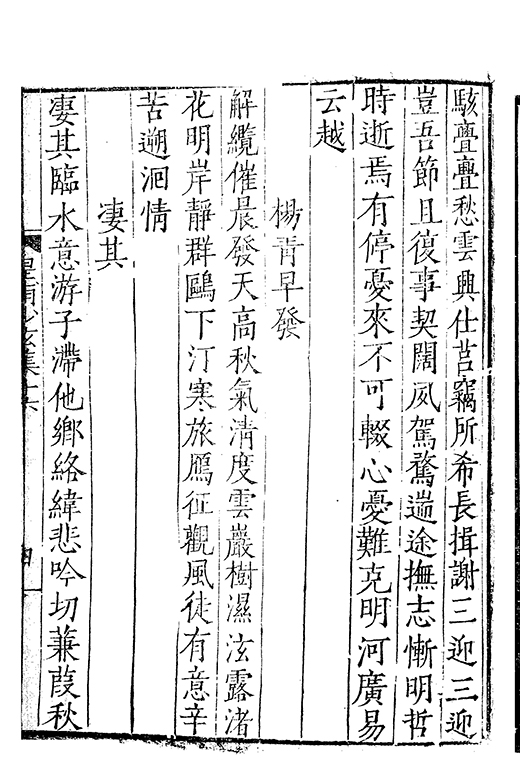 駭亹亹愁雲興仕莒竊所希長揖謝三迎三迎
豈吾節且復事契闊夙駕騖遄途撫志慚明哲
時逝焉有停憂來不可輟心憂難克明河廣易
云越
楊青早發
解纜催晨發天高秋氣清度雲巖樹濕泫露渚
花明岸靜群鷗下汀寒旅鴈征觀風徒有意辛
苦遡洄情
淒其
淒其臨水意游子滯他鄉絡緯悲吟切蒹葭秋
皇甫少玄集十六
四